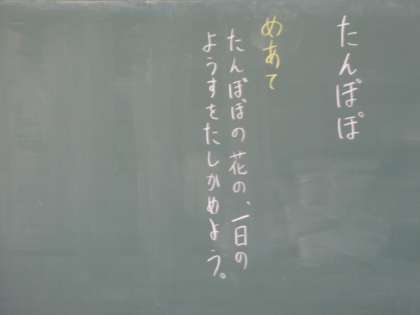 たんぽぽ
めあて
たんぽぽの花の、一日の
ようすをたしかめよう。